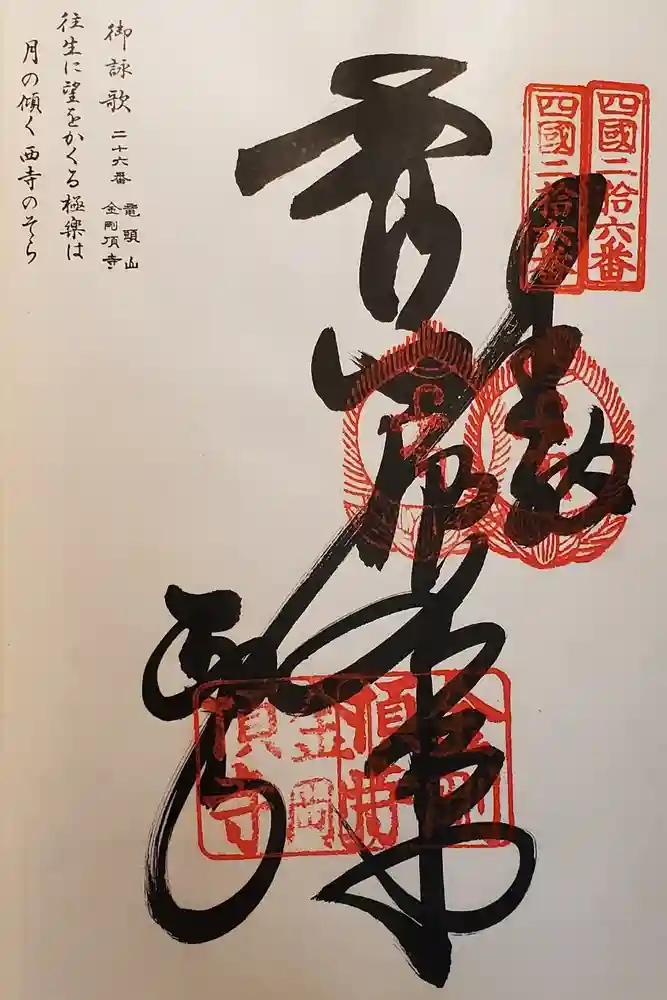 四國二拾六番
四國二拾六番
奉納
金剛
頂寺
金剛
頂寺
御詠歌 二十六番 竜頭山
金剛頂寺
往生に望をかくる極樂は
月の傾く西寺のそら